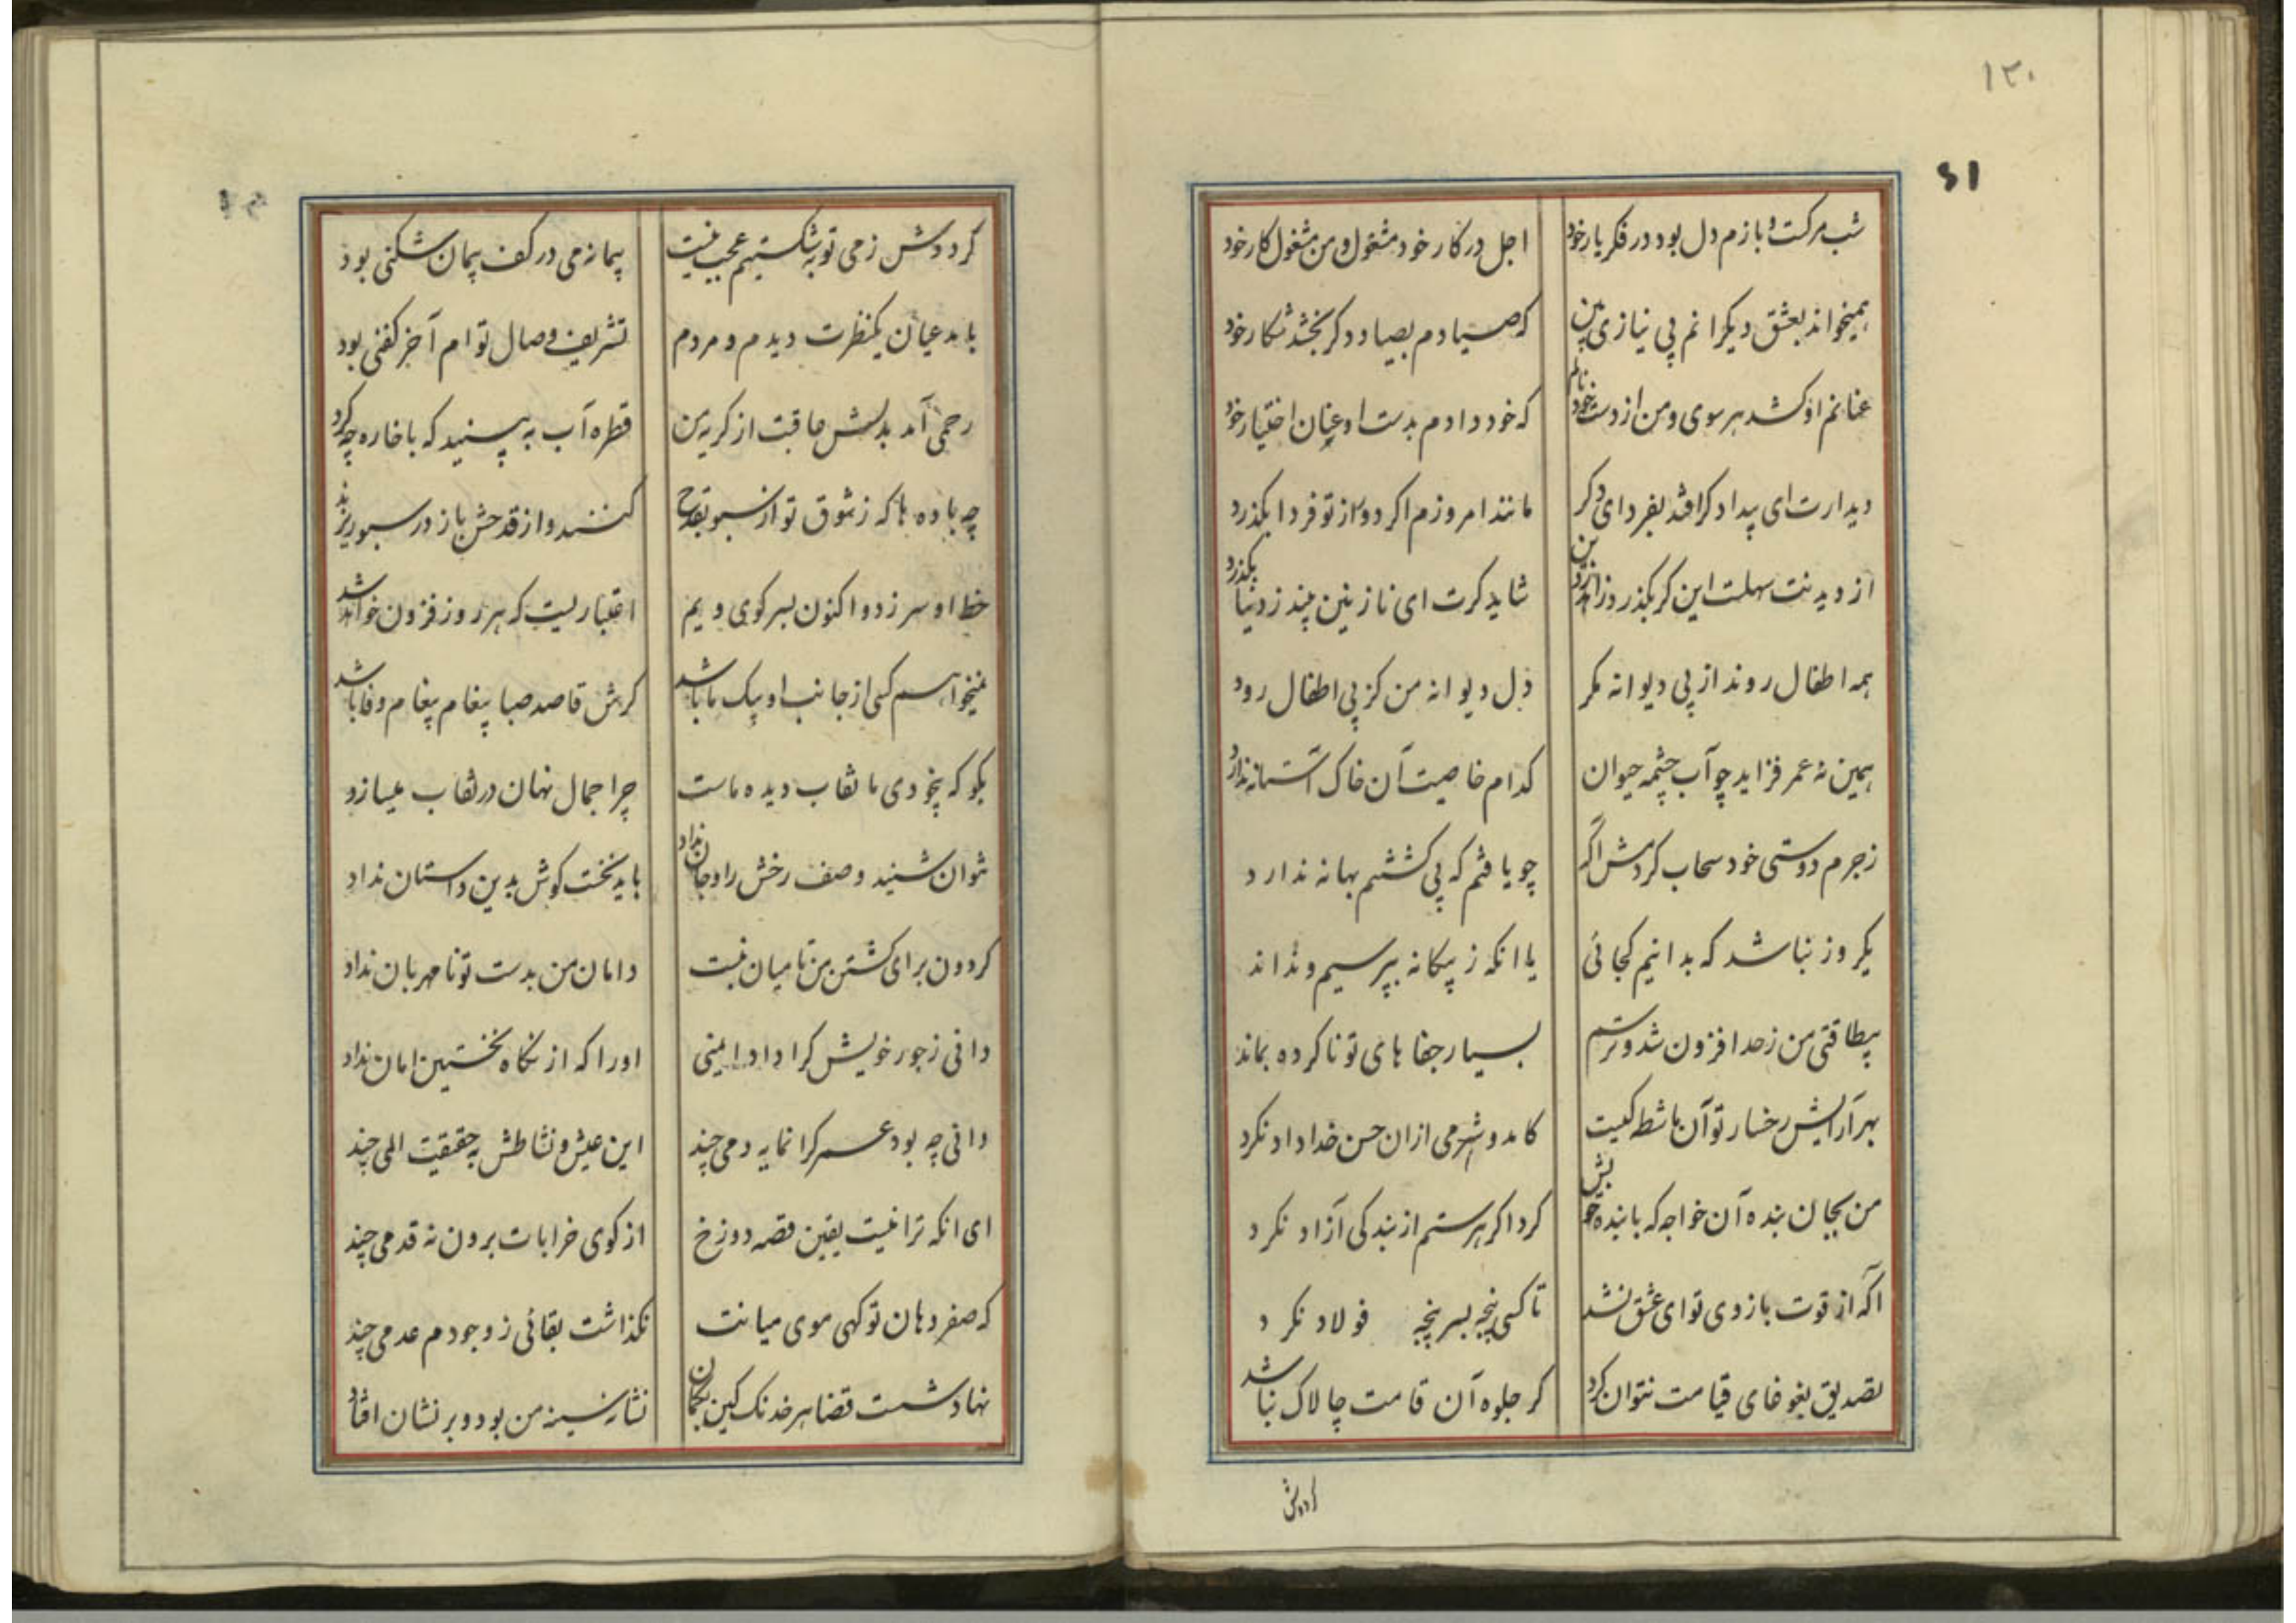 ۱۲۰
۶۱
شب مرکست و بازم دل بود در فکر یار خود
اجل در کار خود مشغول و من مشغول کار خود
همیخواند بعشق دیکرانم بی نیازی بین
که صیادم بصیاد دکر بخشد شکار خود
عنانم او کشد هر سوی و من از دست خود نالم
که خود دادم بدست او عنان اختیار خود
دیدارت ای بیدادکر افتد بفردای دکر
مانند امروزم اکر دور از تو فردا بکذرد
از دیدنت سهلست این کر بکذرد
شاید کرت ای نازنین بیند ز دنیا بکذرد
همه اطفال روند از پی دیوانه مکر
دل دیوانه من کز پی اطفال رود
همین نه عمر فزاید چو آب چشمه حیوان
کدام خاصیت آن خاک آستانه ندارد
ز جرم دوستی خود سحاب کردمش آکه
چو یافتم که پی کشتنم بهانه ندارد
یکروز نباشد که بدانیم کجائی
یا انکه ز بیکانه بپرسیم و نداند
بیطاقتی من ز حد افزون شد و ترسم
بسیار جفا های تو ناکرده بماند
بهر آرایش رخسار تو آن ماشطه کیست
کامد و شرمی ازان حسن خداداد نکرد
من بجان بنده آن خواجه که با بنده خویش
کرد اکر هر ستم از بندکی آزاد نکرد
آکه از قوت بازوی تو ای عشق نشد
تا کسی پنجه بسر پنجه فولاد نکرد
تصدیق بغوغای قیامت نتوان کرد
کر جلوه آن قامت چالاک نباشد
کر دوش
کر دوش ز می توبه شکستیم عجب نیست
پیمانه می در کف پیمان شکنی بود
یکنظرت دیدم و مردم
تشریف وصال توام آخر کفنی بود
رحمی آمد بدلش عاقبت از کریه من
قطره آب به بینید که با خاره چه کرد
چه باده ها که ز شوق تو از سبو بقدح
کنند و از قدحش باز در سبو ریزند
خط او سر زد و اکنون بسر کوی ویم
اعتباریست که هر روز فزون خواهد شد
نمیخواهم کسی از جانب او پیک ما باشد
کرش قاصد صبا پیغام پیغام وفا باشد
بکو که بیخودی ما نقاب دیده ماست
چرا جمال نهان در نقاب میسازد
نتوان شنید وصف رخش را و جان نداد
باید نخست کوش بدین داستان نداد
کردون برای کشتن من تا میان نبست
دامان من بدست تو نامهربان نداد
دانی ز جور خویش کرا داد ایمنی
اورا که از نکاه نخستین امان نداد
دانی چه بود عمر کرانمایه دمی چند
این عیش و نشاطش بحقیقت المی چند
ای انکه ترا نیست یقین قصه دوزخ
از کوی خرابات برون نه قدمی چند
که صفر دهان تو کهی موی میانت
نکذاشت بقائی ز وجودم عدمی چند
نهاد شست قضا هر خدنک کین بکمان
نشانه سینه من بود و بر نشان افتاد